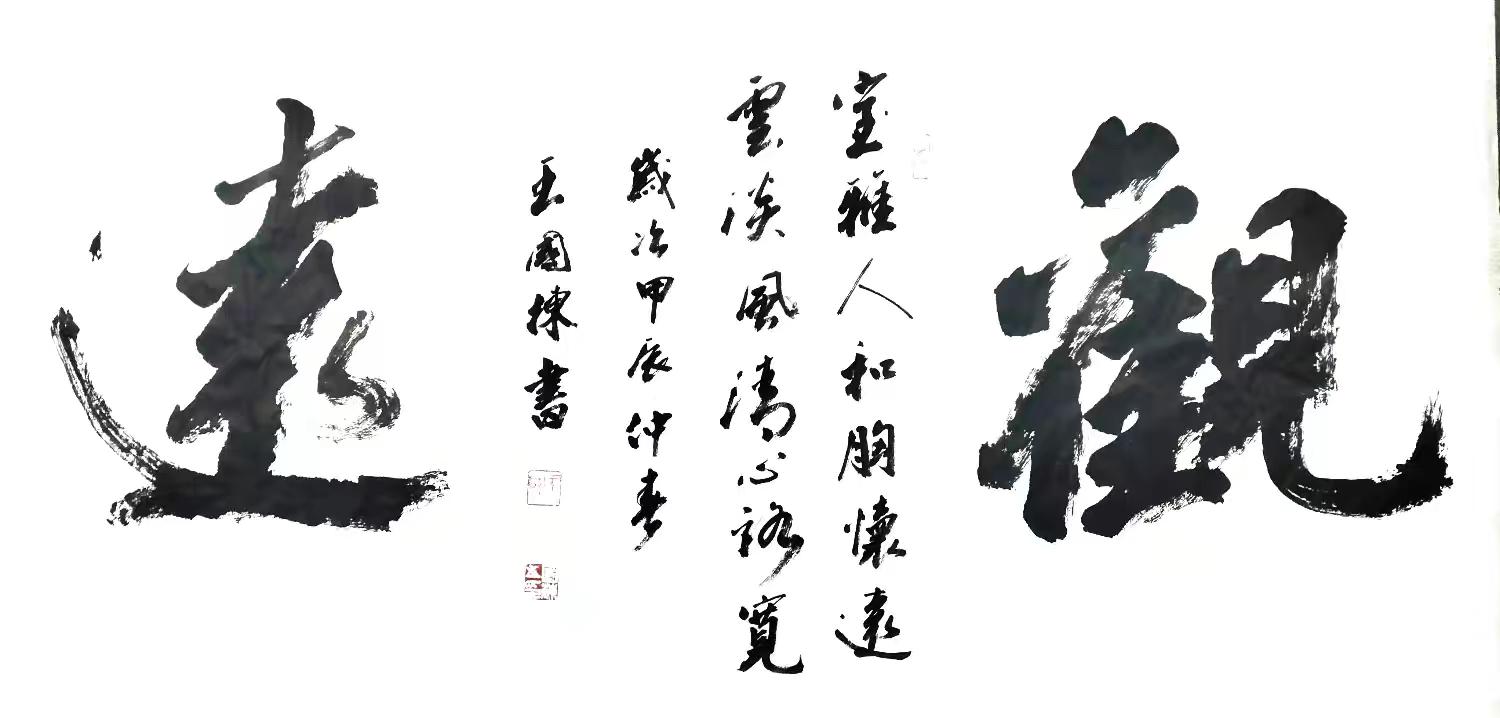 觀
室雅人和胸懷遠
雲淡風清心路寬
歲次甲辰仲春
王國棟書
遠